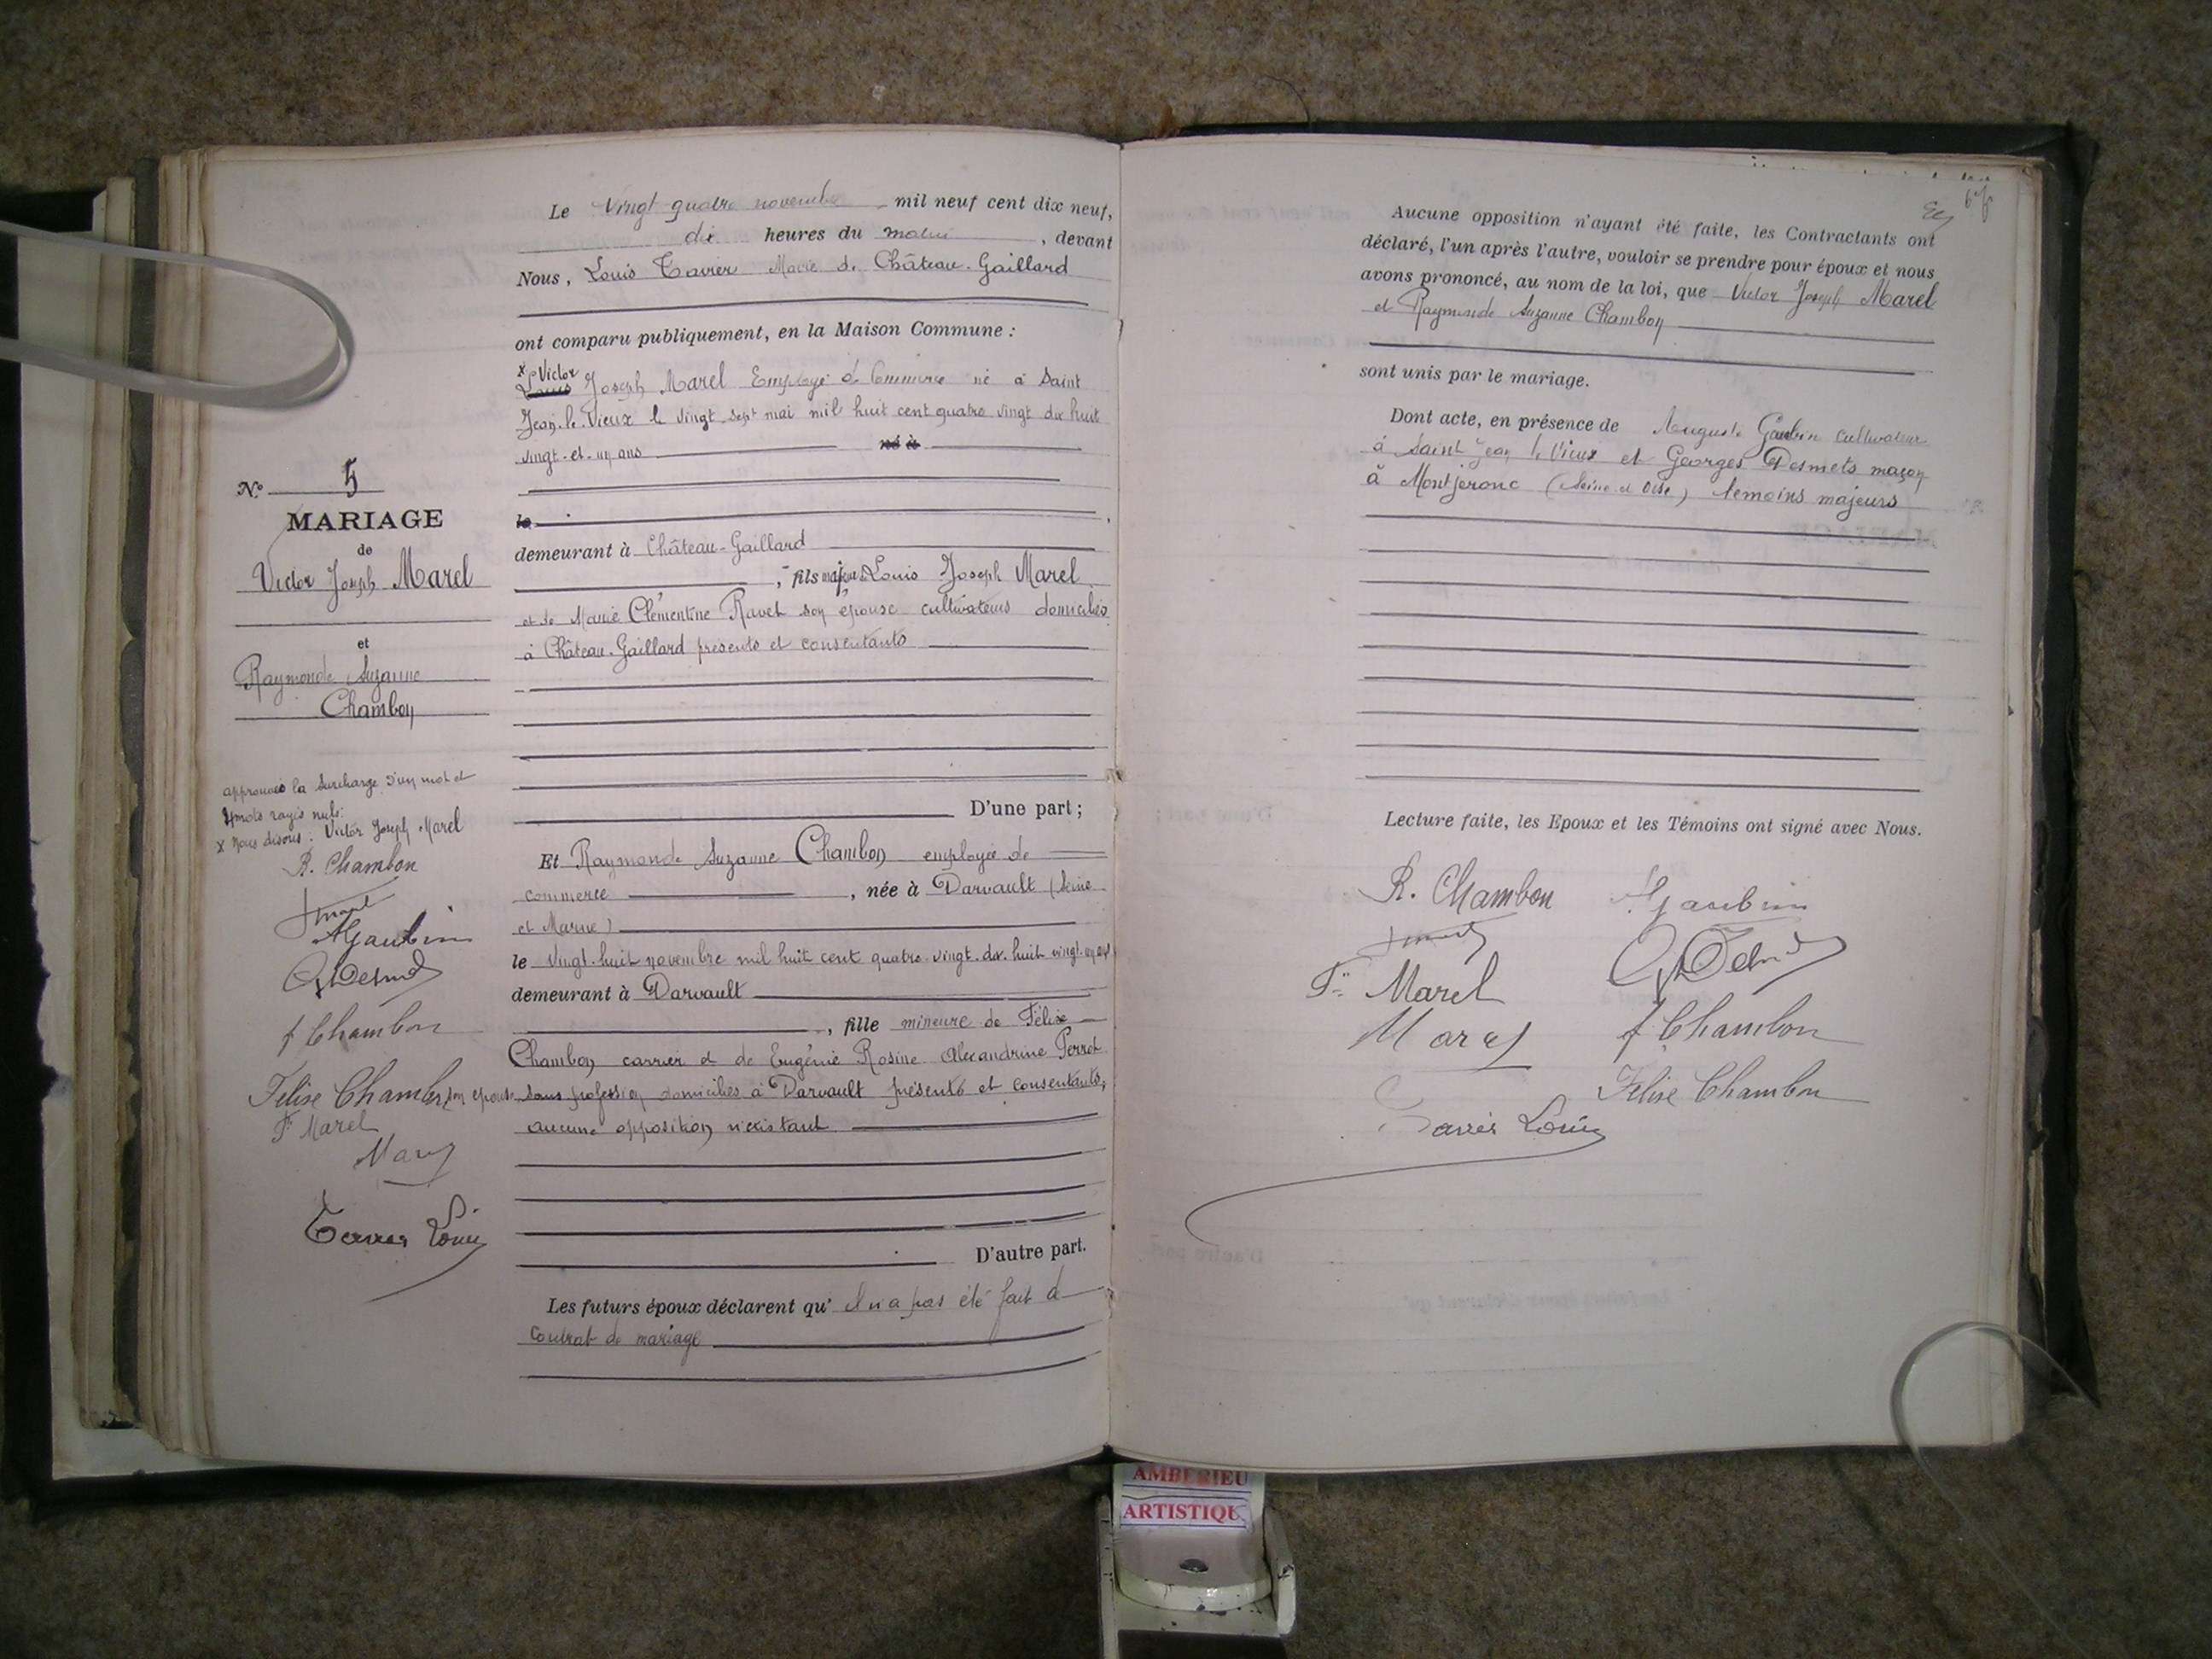 Le Vingt quatre novembre mil neuf cent dix neuf,
dix heures du matin, devant
Nous, Louis Tavier Maire de Château-Gaillard
ont comparu publiquement, en la Maison Commune :
x Victor
Louis Joseph Marel Employé de Commerce né à Saint
Jean-le-Vieux le vingt-sept mai mil huit cent quatre vingt dix huit
vingt-et-un ans né à
le
demeurant à Château-Gaillard
, fils majeur de Louis Joseph Marel
et de Marie Clémentine Ravet son épouse cultivateurs domiciliés
à Château-Gaillard présents et consentants
D'une part ;
Et Raymonde Suzanne Chambon employée de
commerce, née à Darvault (Seine
et Marne)
le vingt-huit novembre mil huit cent quatre-vingt-dix-huit vingt-un ans
demeurant à Darvault
, fille mineure de Félix
Chambon carrier et de Eugénie Rosine Alexandrine Perrot
son épouse sans profession domiciliés à Darvault présents et consentants,
aucune opposition n'existant
D'autre part.
Les futurs époux déclarent qu' il n'a pas été fait de
contrat de mariage
N° 5
MARIAGE
de
Victor Joseph Marel
et
Raymonde Suzanne
Chambon
approuvés la surcharge d'un mot et
mots rayés nuls.
x Nous disons : Victor Joseph Marel
R. Chambon
A Gaubin
G Desmets
f Chambon
Felise Chambon
F Marel
Marel
Tavier Louis
Aucune opposition n'ayant été faite, les Contractants ont
déclaré, l'un après l'autre, vouloir se prendre pour époux et nous
avons prononcé, au nom de la loi, que Victor Joseph Marel
et Raymonde Suzanne Chambon
sont unis par le mariage.
Dont acte, en présence de Auguste Gaubin cultivateur
à Saint Jean le Vieux et Georges Desmets maçon
à Montjeronc (Seine et Oise) témoins majeurs
Lecture faite, les Epoux et les Témoins ont signé avec Nous.
R. Chambon
A Gaubin
F Marel
Marel
f Chambon
Felise Chambon
Tavier Louis
AMBERIEU
ARTISTIQU